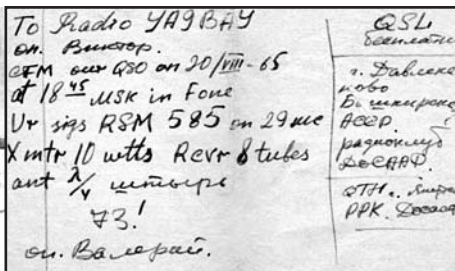 To Radio YA9BAY
оп. Виктор.
CFM our QSO on 20/VIII-65
at 18 45 MSK in Fone
Ur sigs RSM 585 on 29 mc
Xmtr 10 wtts Rcvr 8 tubes
ant λ/4 штырь
73!
оп. Валерий.
QSL
бесплатно
г. Давлека
ново
Башкирск
АССР
радиоклуб
ДОСААФ.
QTH г.
РРК. Досааф